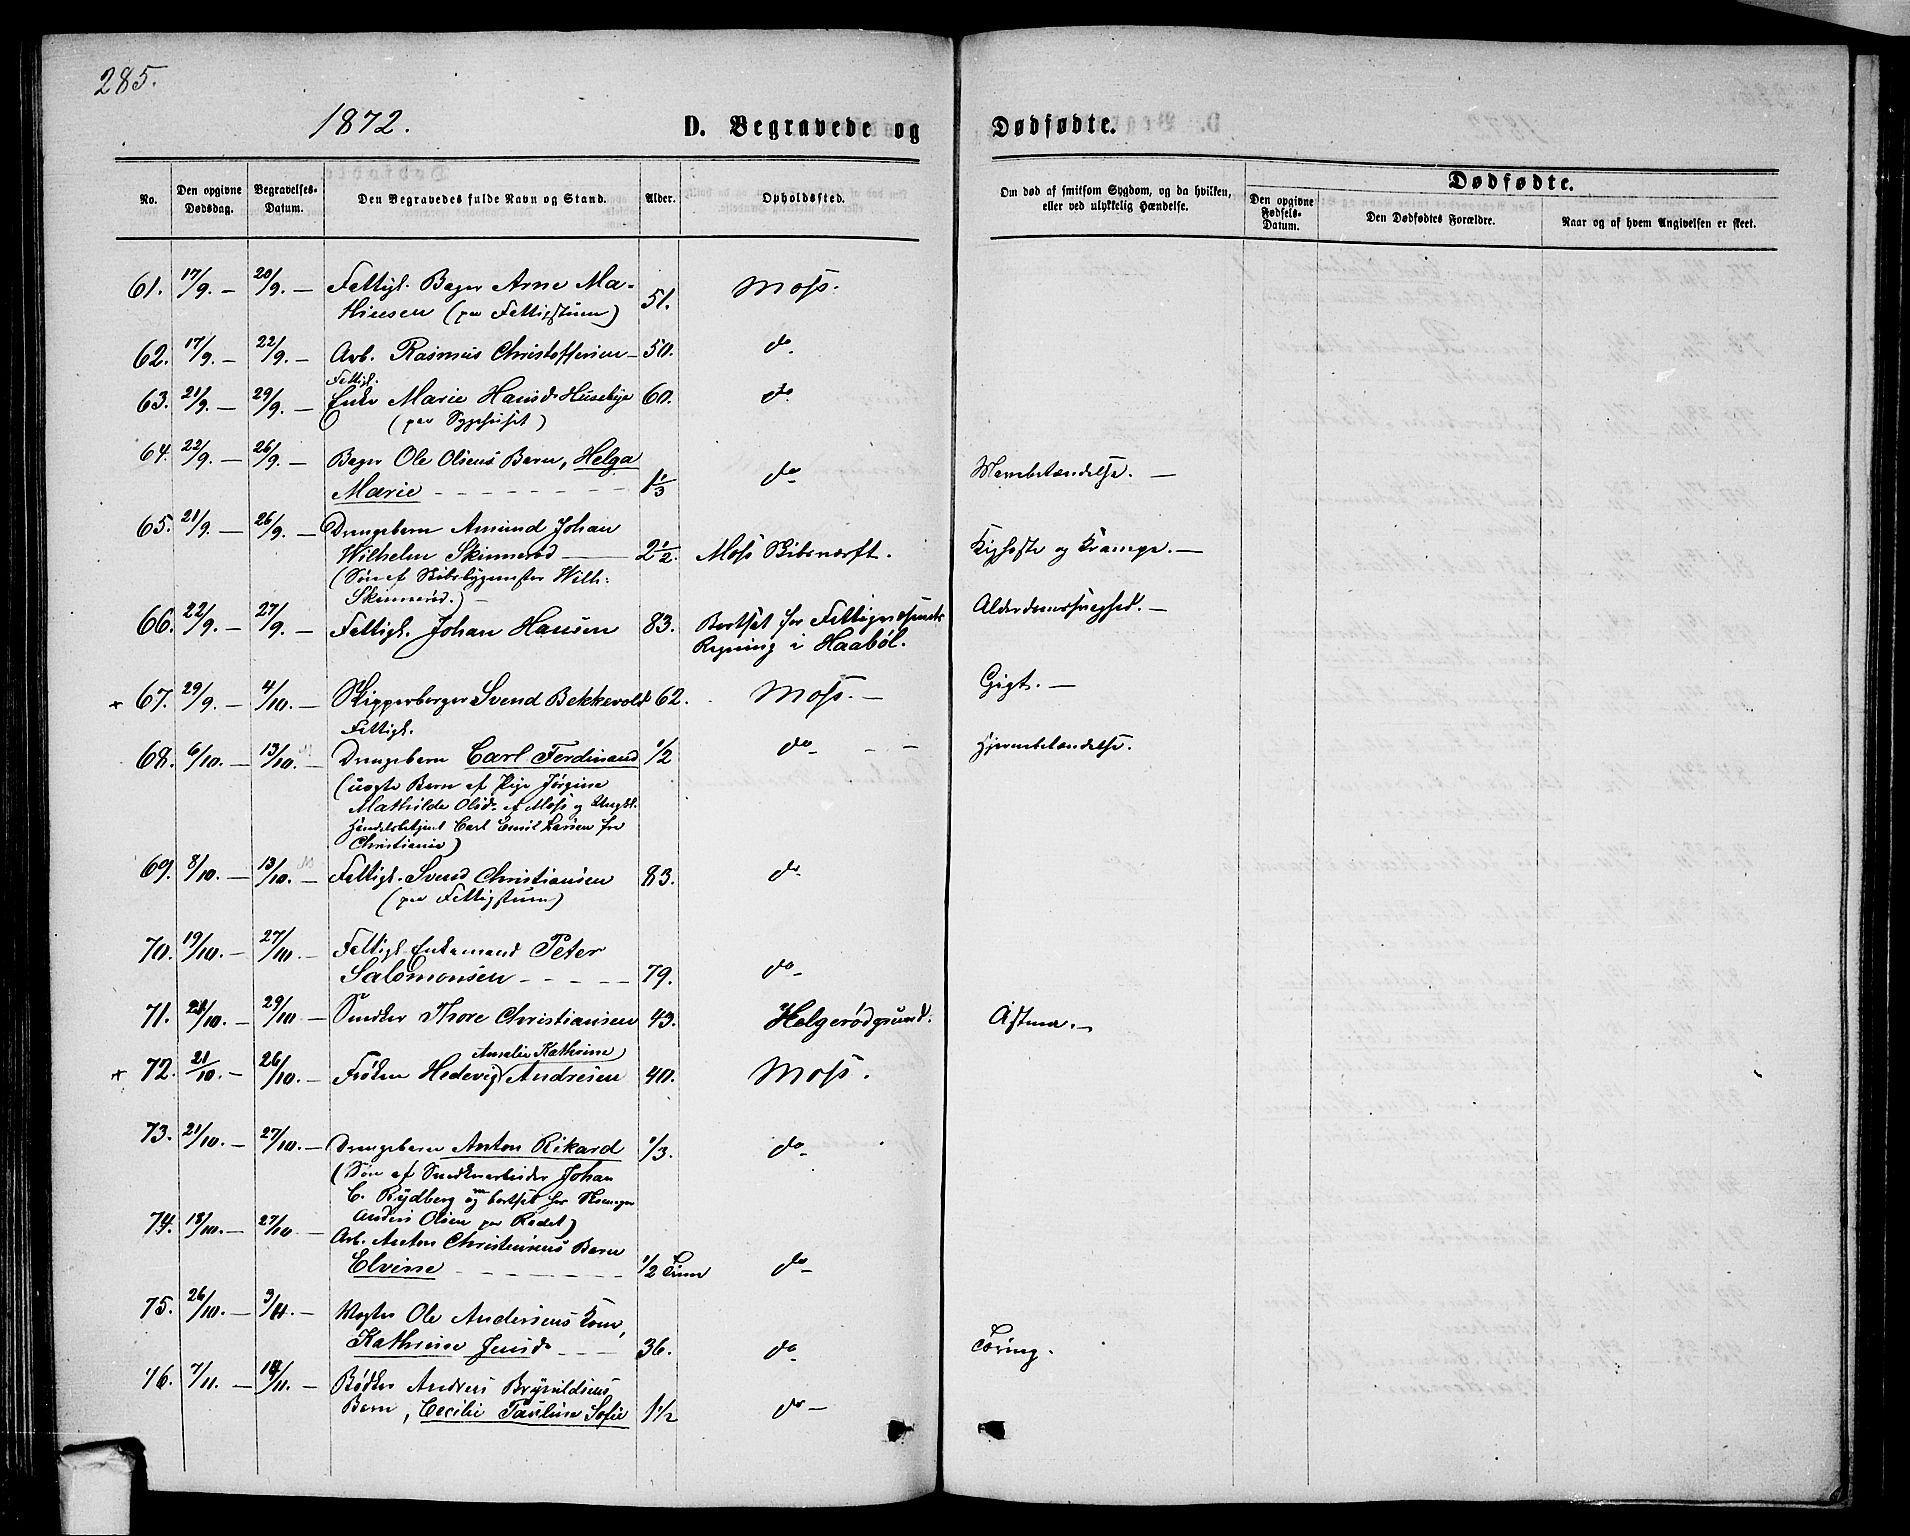 285.
1872.
D. Begravede og Dødfødte.
No. Den opgivne Dødsdag. Begravelses-Datum. Den Begravedes fulde Navn og Stand. Alder. Opholdssted. Om død af smitsom Sygdom, og da hvilken, eller ved ulykkelig Hændelse. Dødfødte.
Den opgivne Fødsels-Datum. Den Dødfødtes Forældre. Naar og af hvem Angivelsen er skeet.
61. 17/9. — 20/9. — Fattigl. Bager Arne Ma- 51. Moss.
thiesen (paa Fattigstuen)
62. 17/9. — 22/9. — Arb. Rasmus Christoffersen 50. do
Fattigl.
63. 21/9. — 29/9. — Enke Marie Hansd. Husebye 60. do
(paa Sygehuset)
64. 22/9. — 26/9. — Bager Ole Olsens Barn, Helga
Marie - - - 1 1/3 do Mavebetændelse. —
65. 21/9. — 26/9. — Drengebarn Amund Johan
Wilhelm Skinnerød — 2 1/2. Moss Skibsværft. Kighoste og Krampe. —
(Søn af Skibsbygmester Wilh.
Skinnerød.) —
66. 22/9. — 27/9. — Fattigl. Johan Hansen 83. Bortsat for Fattigvæsenets Alderdomssvaghed. —
Regning i Haabøl.
+ 67. 29/9. — 4/10. — Skipperborger Svend Bekkevold 62. Moss. — Gigt. —
Fattigl.
68. 6/10. — 13/10. — Drengebarn Carl Ferdinand 1/2 do - - Hjernebetændelse.
(uægte Barn af Pige Jørgine
Mathilde Olsd. af Moss og Ungkl.
Handelsbetjent Carl Emil Larsen fra
Christiania)
69. 8/10. — 13/10. — Fattigl. Svend Christiansen 83. do
(paa Fattigstuen)
70. 19/10. — 27/10. — Fattigl. Enkemand Peter
Salomonsen - - - 79. do
71. 21/10. — 29/10 — Snedker Thore Christiansen 43. Helgerødgrund. Astma. —
Amalie Kathrine
+ 72. 21/10. — 26/10. — Frøken Hedevig Andresen 40. Moss.
73. 21/10. — 27/10. — Drengebarn Anton Rikard 1/3. do
(Søn af Snedkerarbeider Johan
C. Rydberg og bortsat hos
Anders Olsen paa Rødet)
74. 18/10. — 27/10 — Arb. Anton Christensens Barn
Elvine - - - 1/2 Time do
75. 26/10. — 3/11. — Vægter Ole Andersens Kone,
Kathrine Jensd. - - - 36. do Tæring.
76. 7/11. — 11. — Bødker Andreas Brynildsens
Barn, Cecilie Pauline Sofie 1 1/2 do —